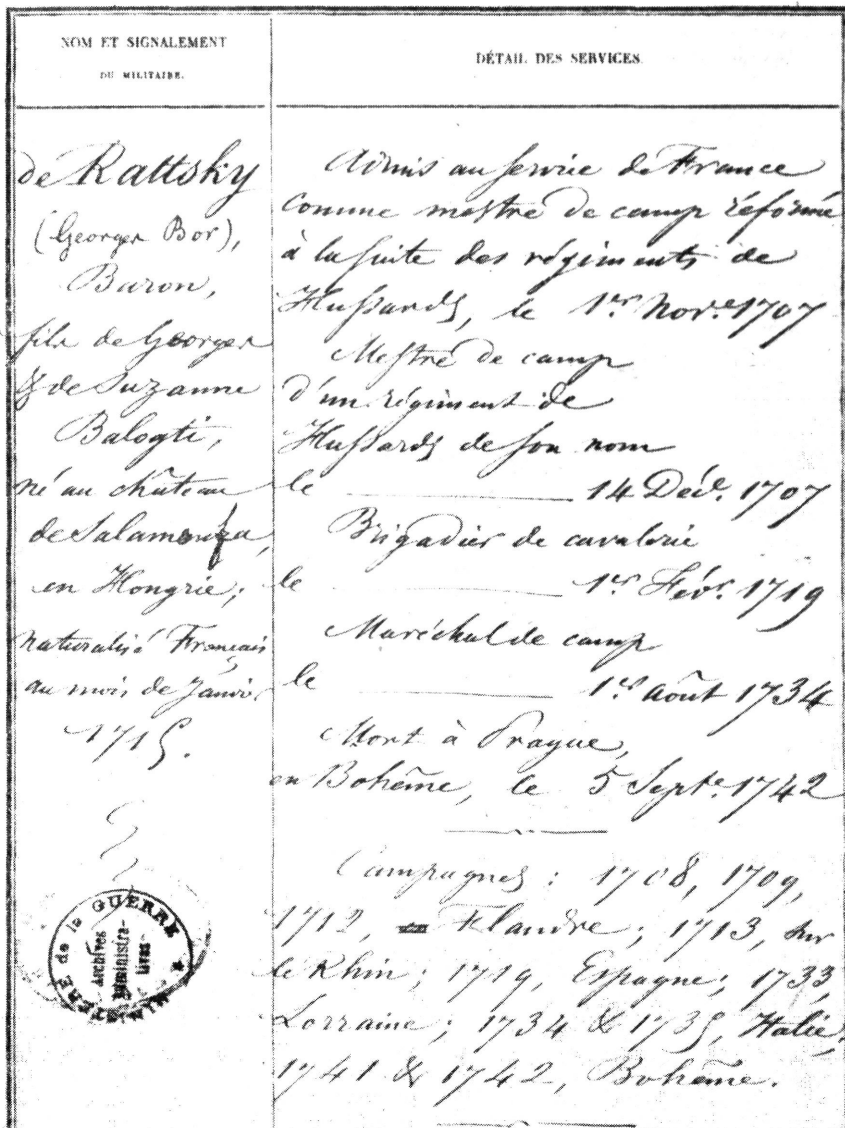 NOM ET SIGNALEMENT
DU MILITAIRE.
DÉTAIL DES SERVICES.
de Rattsky
(Georges Bor),
Baron,
fils de Georges
& de Suzanne
Balogti,
né au château
de
en Hongrie;
naturalisé Français
au mois de Janvr.
1715.
MINISTÈRE de la GUERRE
Archives
Administra-
tives
Admis au service de France
comme mestre de camp réformé
à la suite des régiments de
Hussards, le 1er Nov.e 1707
Mestre de camp
d'un régiment de
Hussards de son nom
le 14 Déc.e 1707
Brigadier de cavalerie
le 1er Févr. 1719
Maréchal de camp
le 1er août 1734
Mort à Prague,
en Bohême, le 5 Septe. 1742
Campagnes : 1708, 1709,
1712, Flandre; 1713, sur
le Rhin; 1719, Espagne; 1733,
Lorraine; 1734 & 1735, Italie,
1741 & 1742, Bohême.